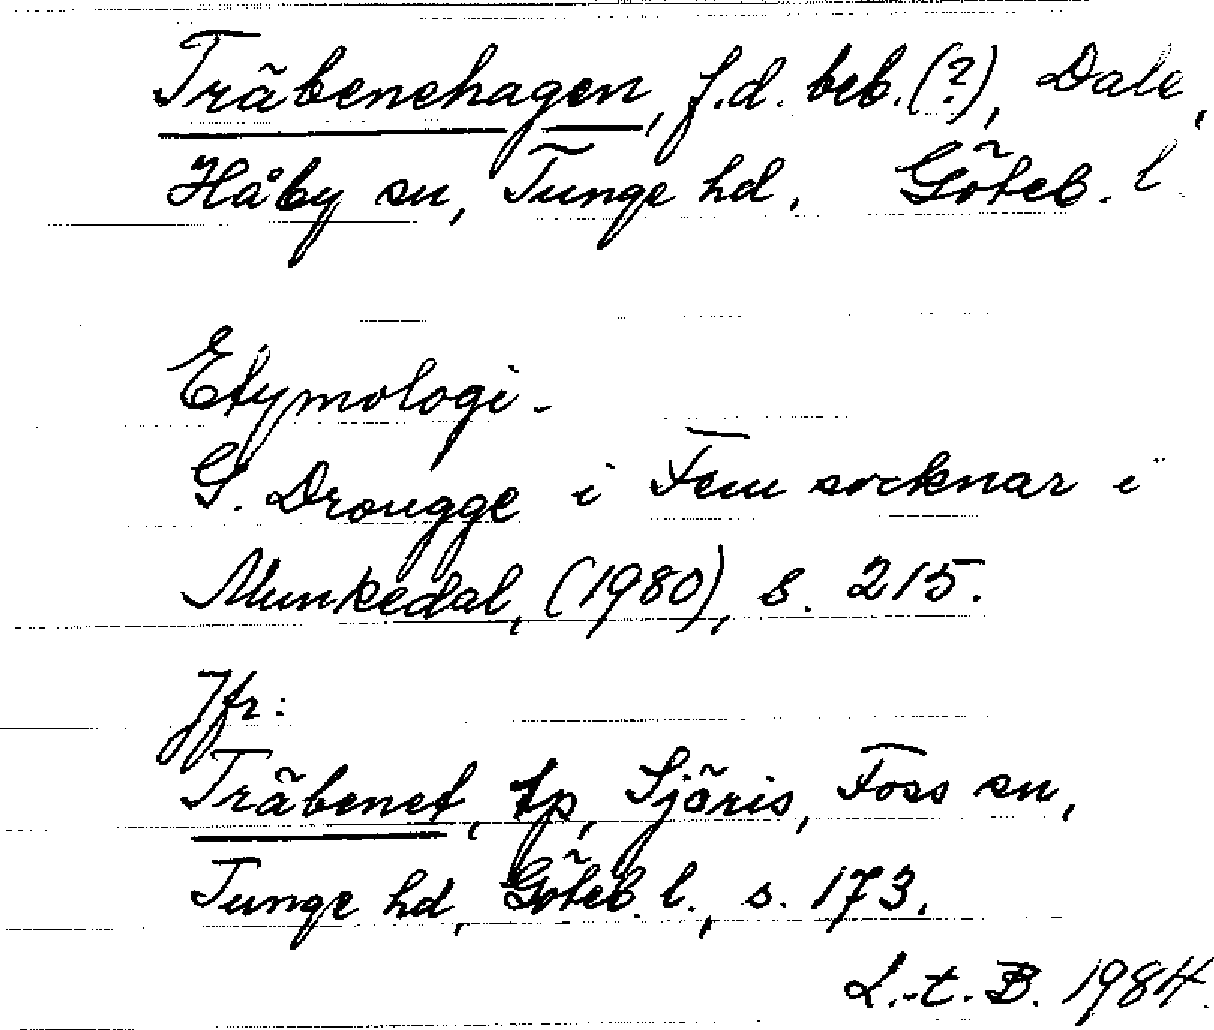 Träbenehagen, f.d. beb. (?), Dale,
Håby sn, Tunge hd. Göteb. l
Etymologi.
G. Drougge i Fem socknar i
Munkedal, (1980), s. 215.
Jfr:
Träbenet, tp, Sjöris, Foss sn,
Tunge hd, Göteb. l., s. 173.
L.-t. B. 1984.